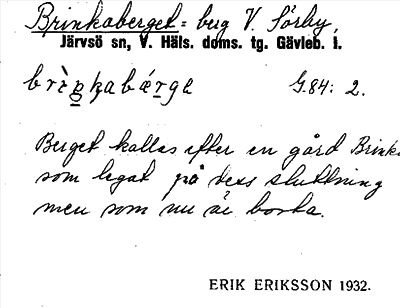 Brinkaberget = berg V. Sörby,
Järvsö sn, V. Häls. doms. tg. Gävleb. l.
G.84: 2.
Berget kallas efter en gård Brinka
som legat på dess sluttning
men som nu är borta.
ERIK ERIKSSON 1932.